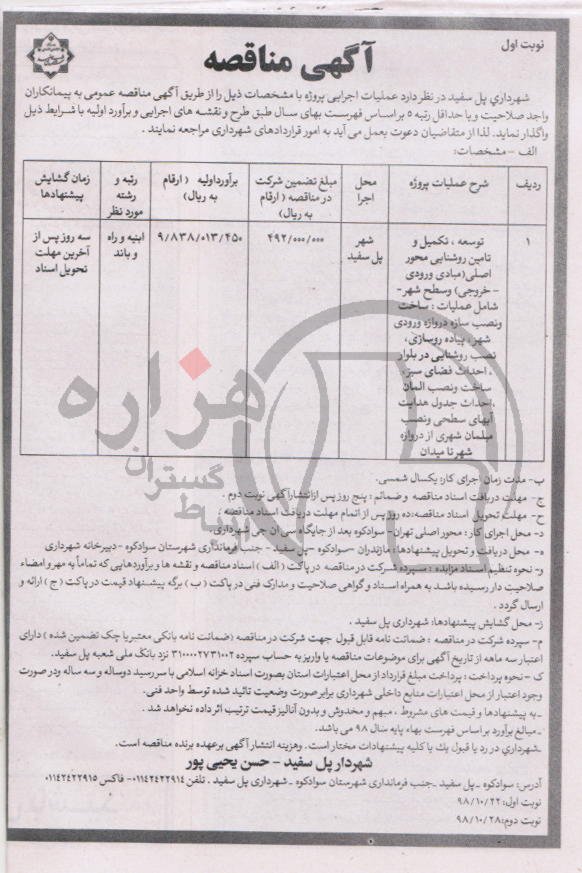 نوبت اول
آگهی مناقصه
شهرداری پل سفید در نظر دارد عملیات اجرایی پروژه با مشخصات ذیل را از طریق آگهی مناقصه عمومی به پیمانکاران
واجد صلاحیت و با حداقل رتبه ۵ بر اساس فهرست بهای سال طبق طرح و نقشه های اجرایی و برآورد اولیه با شرایط ذیل
واگذار نماید. لذا از متقاضیان دعوت بعمل می آید به امور قراردادهای شهرداری مراجعه نمایند .
الف – مشخصات:
ردیف
شرح عملیات پروژه
محل
اجرا
مبلغ تضمین شرکت
در مناقصه ( ارقام
به ریال)
برآورداولیه ( ارقام
به ریال)
رتبه و
رشته
مورد نظر
زمان گشایش
پیشنهادها
۱
توسعه ، تکمیل و
تامین روشنایی محور
اصلی(مبادی ورودی
– خروجی) وسطح شهر-
شامل عملیات : ساخت
ونصب سازه دروازه ورودی
شهر ، پیاده روسازی ،
نصب روشنایی در بلوار
، احداث فضای سبز ،
ساخت ونصب المان
،احداث جدول هدایت
آبهای سطحی ونصب
مبلمان شهری از دروازه
شهر تا میدان
شهر
پل سفید
۴۹۲/۰۰۰/۰۰۰
۹/۸۳۸/۰۱۳/۴۵۰
ابنیه و راه
و باند
سه روز پس از
آخرین مهلت
تحویل اسناد
هزاره
گستران
ب- مدت زمان اجرای کار: یکسال شمسی.
ج- مهلت دریافت اسناد مناقصه وضمائم : پنج روز پس ازانتشارآگهی نوبت دوم .
ح- مهلت تحویل اسناد مناقصه:ده روز پس از اتمام مهلت دریافت اسناد مناقصه .
د- محل اجرای کار : محور اصلی تهران- سوادکوه بعد از جایگاه سی ان جی شهرداری.
ه- محل دریافت و تحویل پیشنهادها: مازندران -سوادکوه -پل سفید – جنب فرمانداری شهرستان سوادکوه -دبیرخانه شهرداری
و- نحوه تنظیم اسناد مزایده : سپرده شرکت در مناقصه در پاکت ( الف ) اسناد مناقصه و نقشه ها و برآوردهایی که تماماً به مهر و امضاء
صلاحیت دار رسیده باشد به همراه اسناد و گواهی صلاحیت و مدارک فنی در پاکت ( ب ) برگه پیشنهاد قیمت در پاکت ( ج ) ارائه و
ارسال گردد .
ز- محل گشایش پیشنهادها: شهرداری پل سفید .
م- سپرده شرکت در مناقصه : ضمانت نامه قابل قبول جهت شرکت در مناقصه (ضمانت نامه بانکی معتبریا چک تضمین شده ) دارای
اعتبار سه ماهه از تاریخ آگهی برای موضوعات مناقصه یا واریز به حساب سپرده ۳۱۰۰۰۰۲۷۳۱۰۰۲ نزد بانک ملی شعبه پل سفید.
ک – نحوه پرداخت : پرداخت مبلغ قرارداد از محل اعتبارات استان بصورت اسناد خزانه اسلامی با سر رسید دوساله و سه ساله ودر صورت
وجود اعتبار از محل اعتبارات منابع داخلی شهرداری برابر صورت وضعیت تائید شده توسط واحد فنی.
ـ به پیشنهادها و قیمت های مشروط ، مبهم و مخدوش و بدون آنالیز قیمت ترتیب اثر داده نخواهد شد .
ـ مبالغ برآورد بر اساس فهرست بهاء پایه سال ۹۸ می باشد.
ـ شهرداری در رد یا قبول یک یا کلیه پیشنهادات مختار است. وهزینه انتشار آگهی برعهده برنده مناقصه است.
شهردار پل سفید – حسن یحیی پور
آدرس: سوادکوه ـ پل سفید ـ جنب فرمانداری شهرستان سوادکوه ـ شهرداری پل سفید . تلفن ۰۱۱۴۲۴۲۲۹۱۴- فاکس ۰۱۱۴۲۴۲۲۹۱۵
نوبت اول: ۹۸/۱۰/۲۲
نوبت دوم: ۹۸/۱۰/۲۸